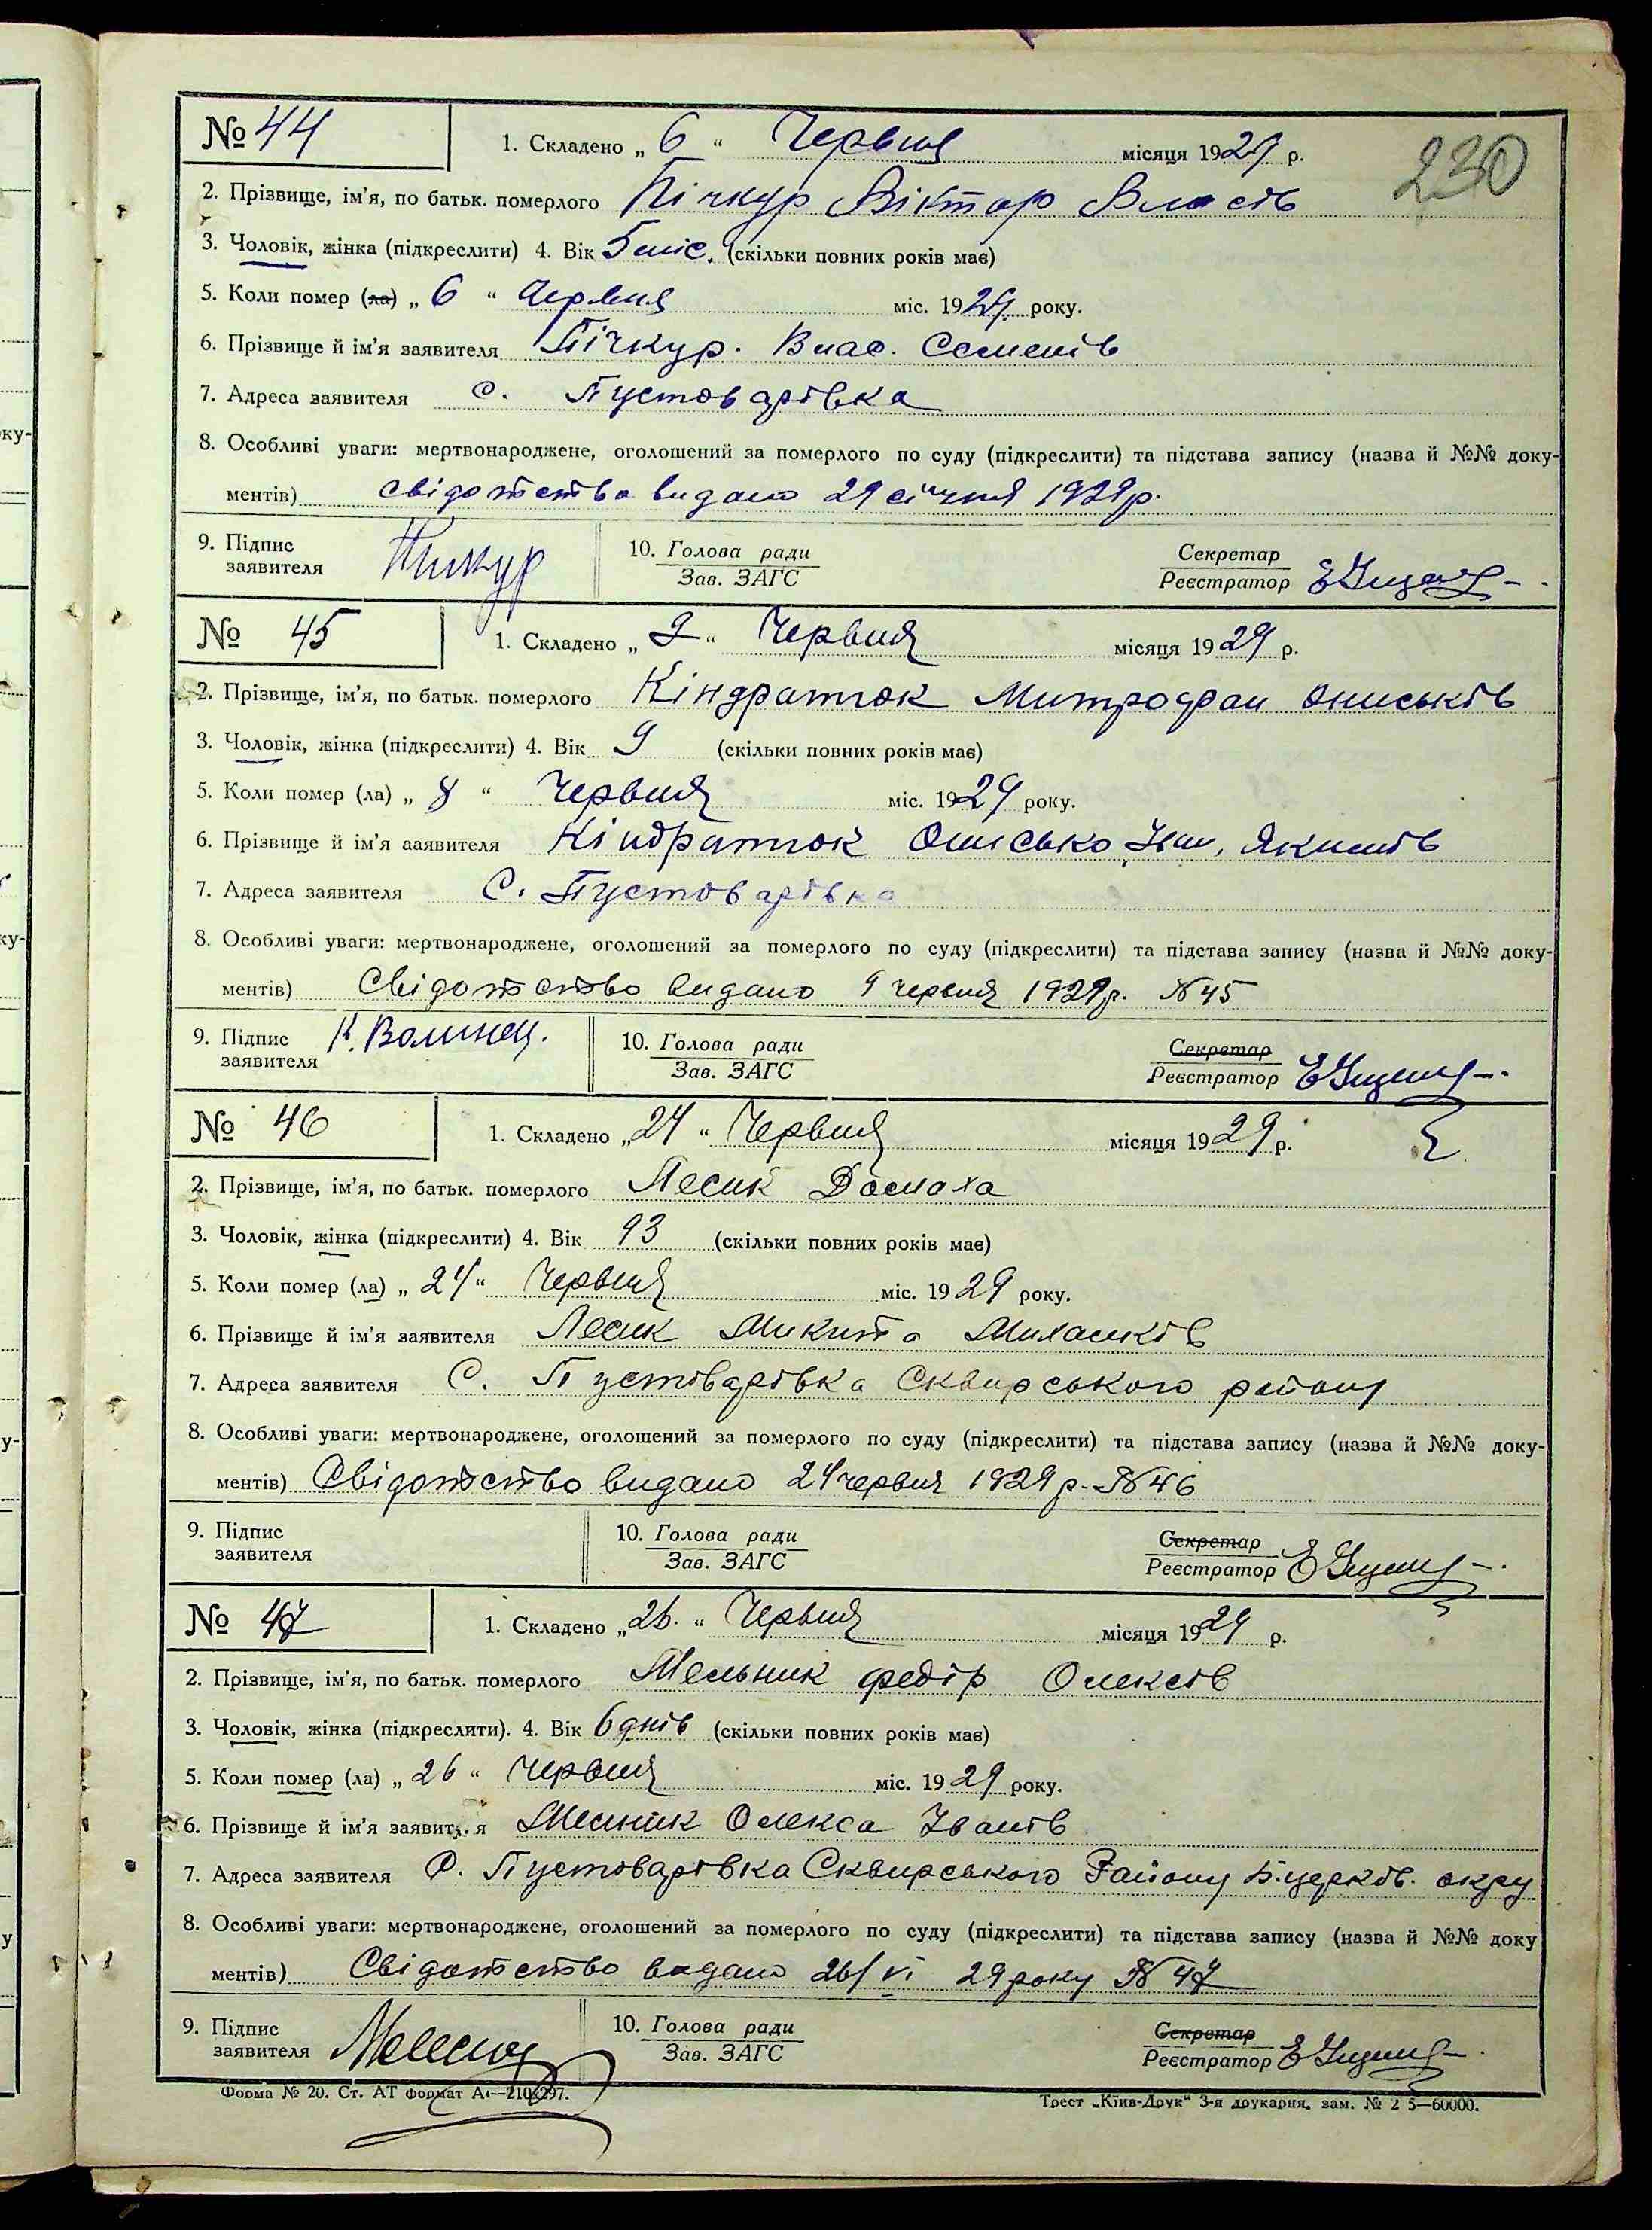 230
№ 44 1. Складено „ 6 “ Червня місяця 1929 р.
2. Прізвище, ім'я, по батьк. померлого Пічкур Віктор Власів
3. Чоловік, жінка (підкреслити) 4. Вік 5 міс. (скільки повних років має)
5. Коли помер (ла) „ 6 “ Червня міс. 1929 року.
6. Прізвище й ім'я заявителя Пічкур. Влас. Семенів
7. Адреса заявителя с. Пустоварівка
8. Особливі уваги: мертвонароджене, оголошений за померлого по суду (підкреслити) та підстава запису (назва й №№ доку-
ментів) свідотство видано 29 січня 1929 р.
9. Підпис заявителя 10. Голова ради Зав. ЗАГС Секретар Реєстратор
№ 45 1. Складено „ 9 “ Червня місяця 1929 р.
2. Прізвище, ім'я, по батьк. померлого Кіндратюк Митрофан Ониськів
3. Чоловік, жінка (підкреслити) 4. Вік 9 (скільки повних років має)
5. Коли помер (ла) „ 8 “ Червня міс. 1929 року.
6. Прізвище й ім'я ааявителя Кіндратюк Онисько, Іван, Якимів
7. Адреса заявителя С. Пустоварівка
8. Особливі уваги: мертвонароджене, оголошений за померлого по суду (підкреслити) та підстава запису (назва й №№ доку-
ментів) Свідотство видано 9 червня 1929 р. № 45
9. Підпис заявителя К. Волинец. 10. Голова ради Зав. ЗАГС Секретар Реєстратор
№ 46 1. Складено „ 24 “ Червня місяця 1929 р.
2. Прізвище, ім'я, по батьк. померлого Лесик Домаха
3. Чоловік, жінка (підкреслити) 4. Вік 93 (скільки повних років має)
5. Коли помер (ла) „ 24 “ Червня міс. 1929 року.
6. Прізвище й ім'я заявителя Лесик Микита Михалків
7. Адреса заявителя С. Пустоварівка Сквирського району
8. Особливі уваги: мертвонароджене, оголошений за померлого по суду (підкреслити) та підстава запису (назва й №№ доку-
ментів) Свідотство видано 24 червня 1929 р. № 46
9. Підпис заявителя 10. Голова ради Зав. ЗАГС Секретар Реєстратор
№ 47 1. Складено „ 26. “ Червня місяця 1929 р.
2. Прізвище, ім'я, по батьк. померлого Мельник Федір Олексів
3. Чоловік, жінка (підкреслити). 4. Вік 6 днів (скільки повних років має)
5. Коли помер (ла) „ 26 “ Червня міс. 1929 року.
6. Прізвище й ім'я заявит.я Мелник Олекса Іванів
7. Адреса заявителя С. Пустоварівка Сквирського Району Б.церків. окру
8. Особливі уваги: мертвонароджене, оголошений за померлого по суду (підкреслити) та підстава запису (назва й №№ доку
ментів) Свідотство видано 26/VI 29 року № 47
9. Підпис заявителя 10. Голова ради Зав. ЗАГС Секретар Реєстратор
Форма № 20. Ст. АТ формат А₄—210×297. Трест „Київ-Друк“ 3-я друкарня. зам. № 2 5—60000.